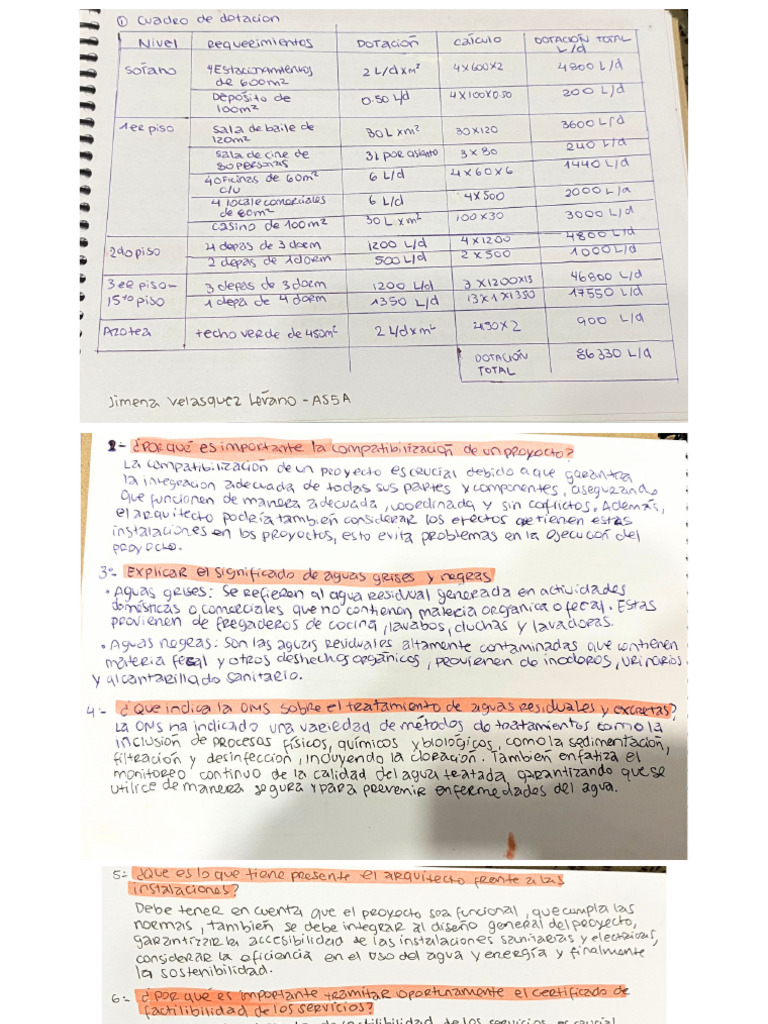 ① Cuadro de dotacion
Nivel Requerimientos Dotación Cálculo Dotación total L/d
Sótano 4 Estacionamientos de 600m² 2 L/dxm² 4x600x2 4800 L/d
Depósito de 100m² 0.50 L/d 4x100x0.50 200 L/d
1er piso Sala de baile de 120m² 30 L x m² 30x120 3600 L/d
Sala de cine de 80 personas 3L por asiento 3x80 240 L/d
4 oficinas de 60m² c/u 6 L/d 4x60x6 1440 L/d
4 locales comerciales de 80m² 6 L/d 4x500 2000 L/d
Casino de 100m² 30 L x m² 100x30 3000 L/d
2do piso 4 depas de 3 dorm 1200 L/d 4x1200 4800 L/d
2 depas de 1 dorm 500 L/d 2x500 1000 L/d
3er piso- 3 depas de 3 dorm 1200 L/d 3x1200x13 46800 L/d
15to piso 1 depa de 4 dorm 1350 L/d 13x1x1350 17550 L/d
Azotea techo verde de 450m² 2 L/dxm² 450x2 900 L/d
Dotación total 86330 L/d
Jimena Velasquez Levano - AS5A
2- ¿Por qué es importante la compatibilización de un proyecto?
La compatibilización de un proyecto es crucial debido a que garantiza
la integracion adecuada de todas sus partes y componentes, asegurando
que funcionen de manera adecuada, coordinada y sin conflictos. Además,
el arquitecto podría también considerar los efectos que tienen estas
instalaciones en los proyectos, esto evita problemas en la ejecución del
proyecto.
3- Explicar el significado de aguas grises y negras
• Aguas grises: Se refieren al agua residual generada en actividades
domésticas o comerciales que no contienen materia organica o fecal. Estas
provienen de fregaderos de cocina, lavabos, duchas y lavadoras.
• Aguas negras: Son las aguas residuales altamente contaminadas que contienen
materia fecal y otros deshechos orgánicos, provienen de inodoros, urinarios
y alcantarillado sanitario.
4- ¿Que indica la OMS sobre el tratamiento de aguas residuales y excretas?
La OMS ha indicado una variedad de métodos de tratamientos como la
inclusión de procesos físicos, químicos y biológicos, como la sedimentación,
filtración y desinfección, incluyendo la cloración. También enfatiza el
monitoreo continuo de la calidad del agua tratada, garantizando que se
utilice de manera segura y para prevenir enfermedades del agua.
5- ¿Que es lo que tiene presente el arquitecto frente a las
instalaciones?
Debe tener en cuenta que el proyecto sea funcional, que cumpla las
normas, también se debe integrar al diseño general del proyecto,
garantizar la accesibilidad de las instalaciones sanitarias y electricas,
considerar la eficiencia en el uso del agua y energía y finalmente
la sostenibilidad.
6- ¿Por qué es importante tramitar oportunamente el certificado de
factibilidad de los servicios?